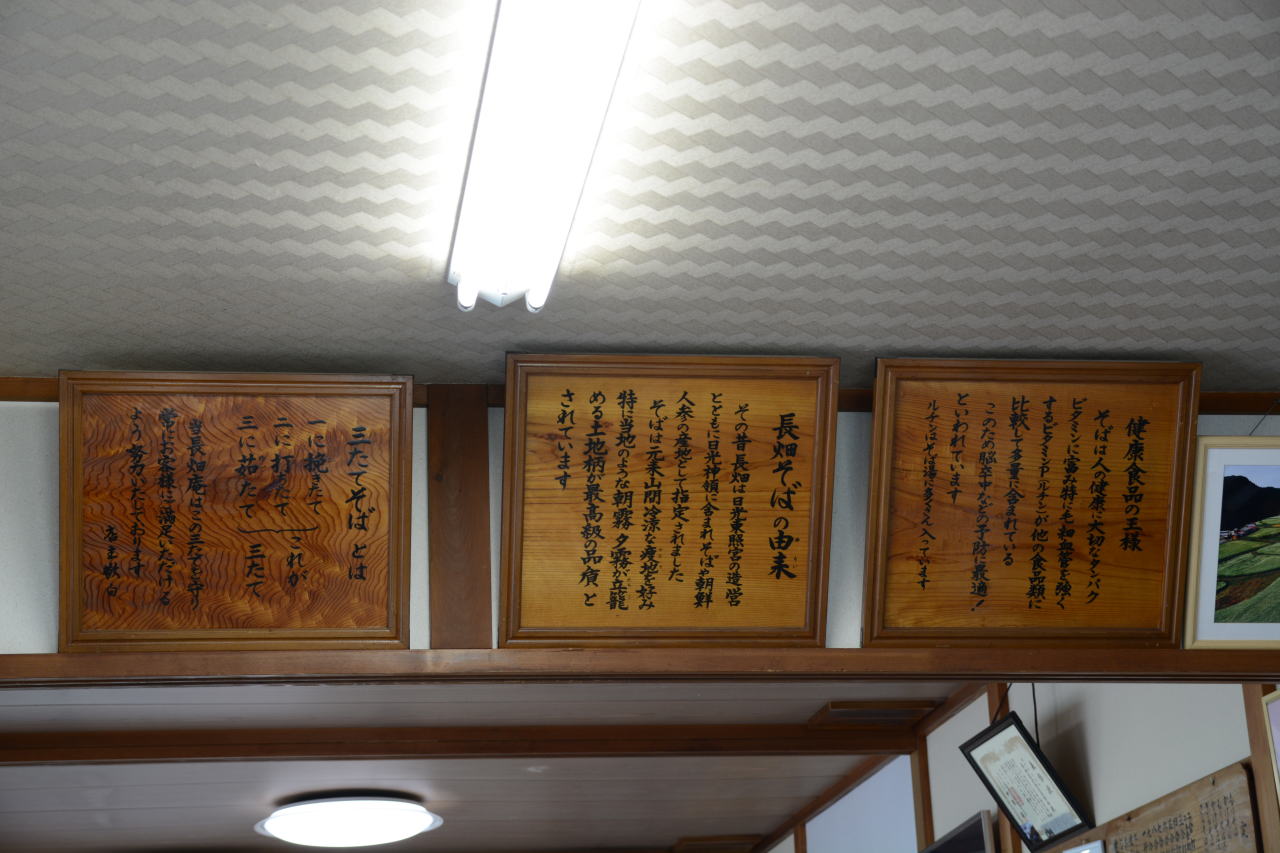 健康食品の王様
そばは人の健康に大切なタンパク
ビタミンに富み特に毛細血管を強く
するビタミンP(ルチン)が他の食品類に
比較して多量に含まれている
このため脳卒中などの予防に最適!
といわれています
ルチンはそば湯に多さん入っています
長畑そばの由来
その昔長畑は日光東照宮の造営
とともに日光神領に含まれそばや朝鮮
人参の産地として指定されました
そばは元来山間冷涼な痩地を好み
特に当地のような朝霧夕霧が立籠
める土地柄が最高級の品質と
されています
三たてそばとは
一に挽きたて
二に打たて
三に茹たて
これが
三たて
当長畑庵はこの三たてを守り
常にお客様に満足いただける
よう努力いたしております
店主敬白